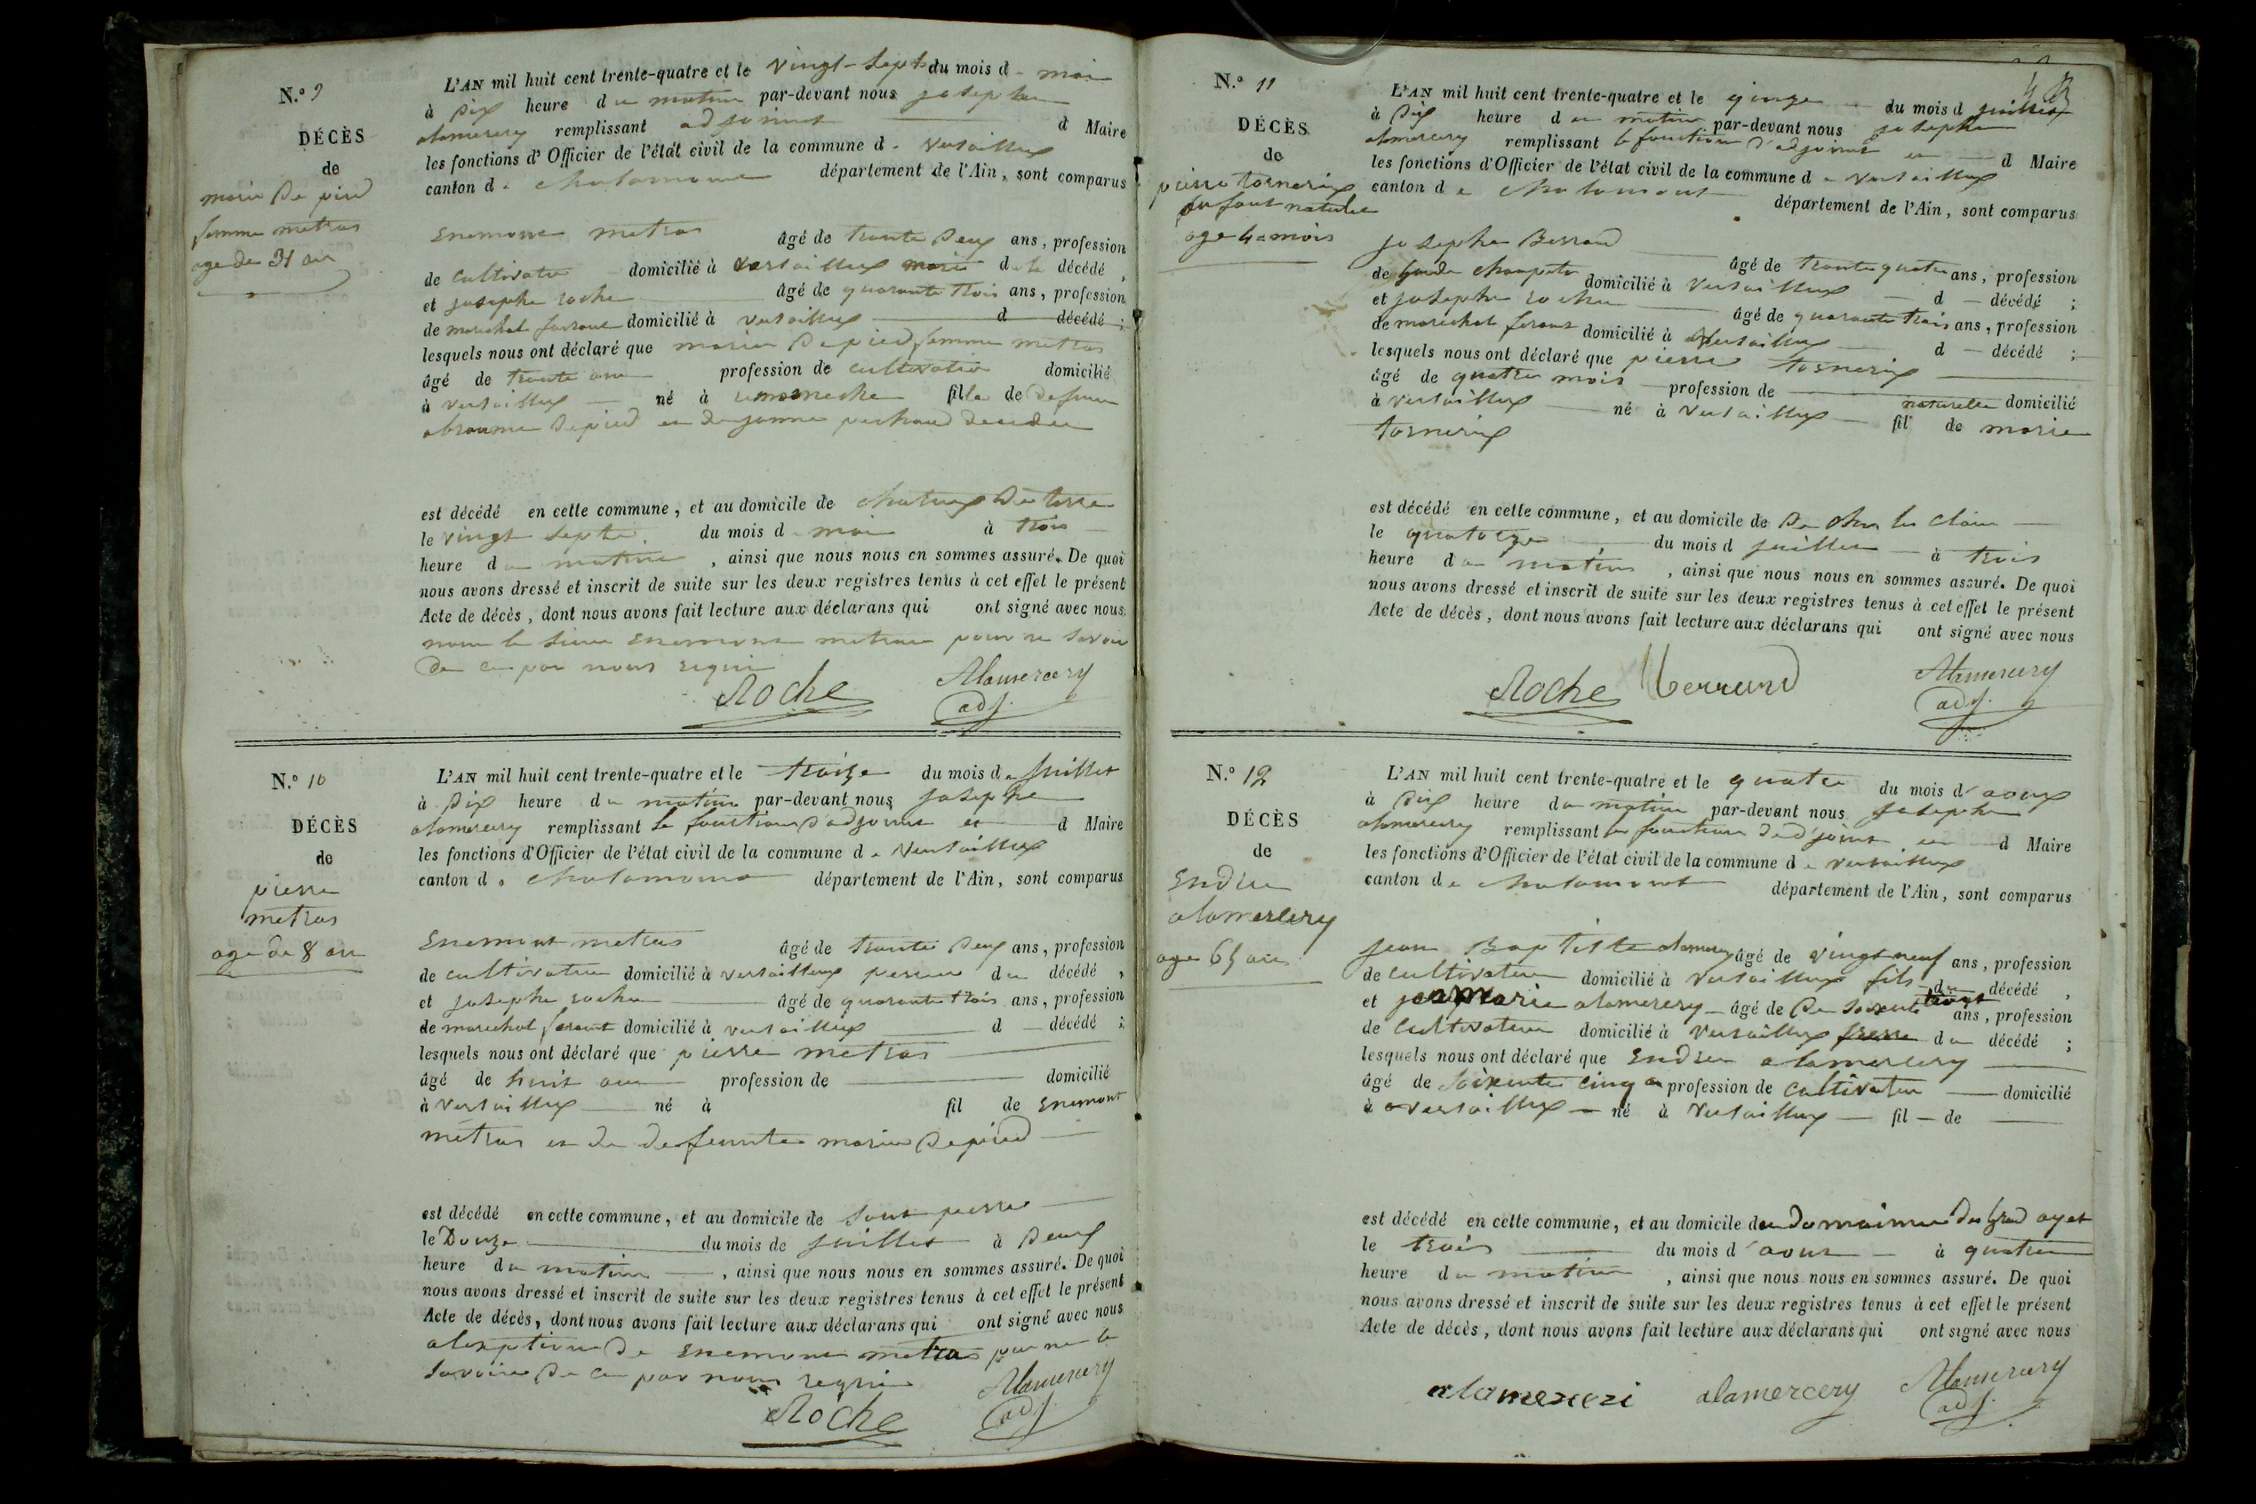 N.º 9
DÉCÈS
de
marie Depied
femme métras
age de 31 an
L'AN mil huit cent trente-quatre et le vingt-sept du mois d mai
à Dix heure du matin par-devant nous josephe
alamercery remplissant adjoint d Maire
les fonctions d'Officier de l'état civil de la commune d. versailleux
canton d. chalamont département de l'Ain, sont comparus
Enemont metras âgé de trente Deux ans, profession
de Cultivateur domicilié à versailleux mari de la décédé,
et josephe roche âgé de quarante trois ans, profession
de marechal ferrant domicilié à versailleux d décédé;
lesquels nous ont déclaré que marie Depied femme metras
âgé de trente profession de cultivatrice domicilié
à versailleux né à fille de defun
Depied et de décédée
est décédé en cette commune, et au domicile de De terre
le vingt septe du mois d mai à trois
heure du matin, ainsi que nous nous en sommes assuré. De quoi
nous avons dressé et inscrit de suite sur les deux registres tenus à cet effet le présent
Acte de décès, dont nous avons fait lecture aux déclarans qui ont signé avec nous
non le sieur Enemont metras pour ne savoir
De ce par nous requi
Roche Alamercery
adj.
N.º 10
DÉCÈS
de
pierre
metras
age de 8 an
L'AN mil huit cent trente-quatre et le traize du mois de juillet
à Dix heure du matin par-devant nous josephe
alamercery remplissant le fonction d'adjoint et d Maire
les fonctions d'Officier de l'état civil de la commune d. Versailleux
canton d. chalamont département de l'Ain, sont comparus
Enemont metras âgé de trente Deux ans, profession
de cultivateur domicilié à versailleux du décédé,
et josephe roche âgé de quarante trois ans, profession
de marechal ferant domicilié à versailleux d décédé;
lesquels nous ont déclaré que pierre metras
âgé de huit ans profession de domicilié
à versailleux né à fil de Enemont
métras et de defeunte marie Depied
est décédé en cette commune, et au domicile de
le Douze du mois de juillet à Deux
heure du matin, ainsi que nous nous en sommes assuré. De quoi
nous avons dressé et inscrit de suite sur les deux registres tenus à cet effet le présent
Acte de décès, dont nous avons fait lecture aux déclarans qui ont signé avec nous
alexption De Enemont metras pour ne le
savoire De ce par nous requi
Roche Alamercery
adj.
N.º 11
DÉCÈS
de
pierre tornerix
enfant naturelle
age 4 mois
L'AN mil huit cent trente-quatre et le qinze du mois d juillet
à Dix heure du matin par-devant nous josephe
alamercery remplissant le fonction d'adjoint et d Maire
les fonctions d'Officier de l'état civil de la commune d. versailleux
canton de chalamont département de l'Ain, sont comparus
josephe Berraud âgé de trente quatre ans, profession
de garde champetre domicilié à versailleux d décédé;
et josephe roche âgé de quarante trois ans, profession
de marechal ferant domicilié à versailleux d décédé;
lesquels nous ont déclaré que pierre tornerix
âgé de quatre mois profession de domicilié
à versailleux né à versailleux fil naturelle de marie
tornerix
est décédé en cette commune, et au domicile de
le quatorze du mois d juillet à trois
heure du matin, ainsi que nous nous en sommes assuré. De quoi
nous avons dressé et inscrit de suite sur les deux registres tenus à cet effet le présent
Acte de décès, dont nous avons fait lecture aux déclarans qui ont signé avec nous
Roche Alamercery
adj.
N.º 12
DÉCÈS
de
Endre
alamercery
age 65 ans
L'AN mil huit cent trente-quatre et le quatre du mois d'aoux
à Dix heure du matin par-devant nous josephe
alamercery remplissant le fonction d'adjoint et d Maire
les fonctions d'Officier de l'état civil de la commune d. versailleux
canton de chalamont département de l'Ain, sont comparus
jean Baptiste alamercery âgé de vingt neuf ans, profession
de cultivateur domicilié à versailleux fils du décédé,
et jean marie alamercery âgé de De soixente ans, profession
de Cultivateur domicilié à versailleux frere du décédé;
lesquels nous ont déclaré que Endre alamercery
âgé de soixente cinq an profession de cultivateur domicilié
à versailleux né à versailleux fil de
est décédé en cette commune, et au domicile du domaine
le trois du mois d'aout à quatre
heure du matin, ainsi que nous nous en sommes assuré. De quoi
nous avons dressé et inscrit de suite sur les deux registres tenus à cet effet le présent
Acte de décès, dont nous avons fait lecture aux déclarans qui ont signé avec nous
alamerceri alamercery Alamercery
adj.